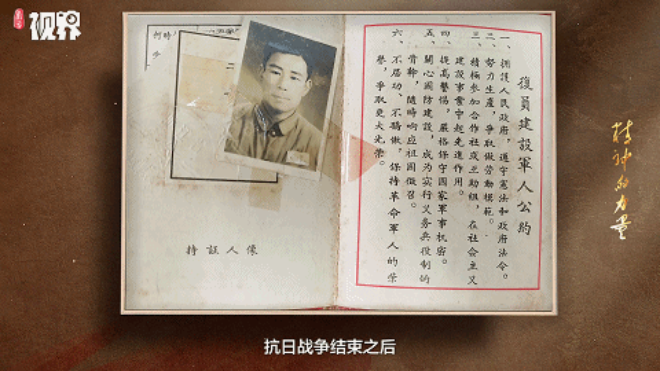 视界
持证人像
復員建設軍人公約
一、擁護人民政府，遵守憲法和政府法令。
二、努力生產，爭取做勞動模範。
三、積極參加合作社或互助組，在社會主义
建設事業中起先進作用。
四、提高警惕，嚴格保守國家軍事机密。
五、關心國防建設，成为实行义务兵役制的
骨幹，隨時响应祖國徵召。
六、不居功、不驕傲，保持革命軍人的榮
譽，爭取更大光荣。
精神的力量
抗日战争结束之后